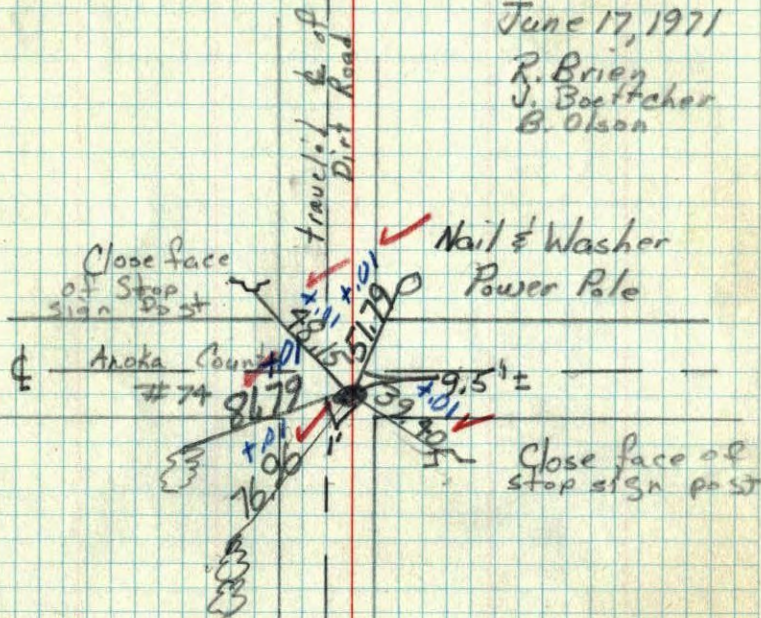 June 17, 1971
R. Brien
J. Boettcher
B. Olson
travel'd ℄ of
Dirt Road
Nail & Washer
Power Pole
Close face
of Stop
sign Post
+.01
+.01
48.15
51.79
℄ Anoka County
# 74
+.01
81.79
9.5'±
+.01
39.40
+.01
76.96
Close face of
stop sign post